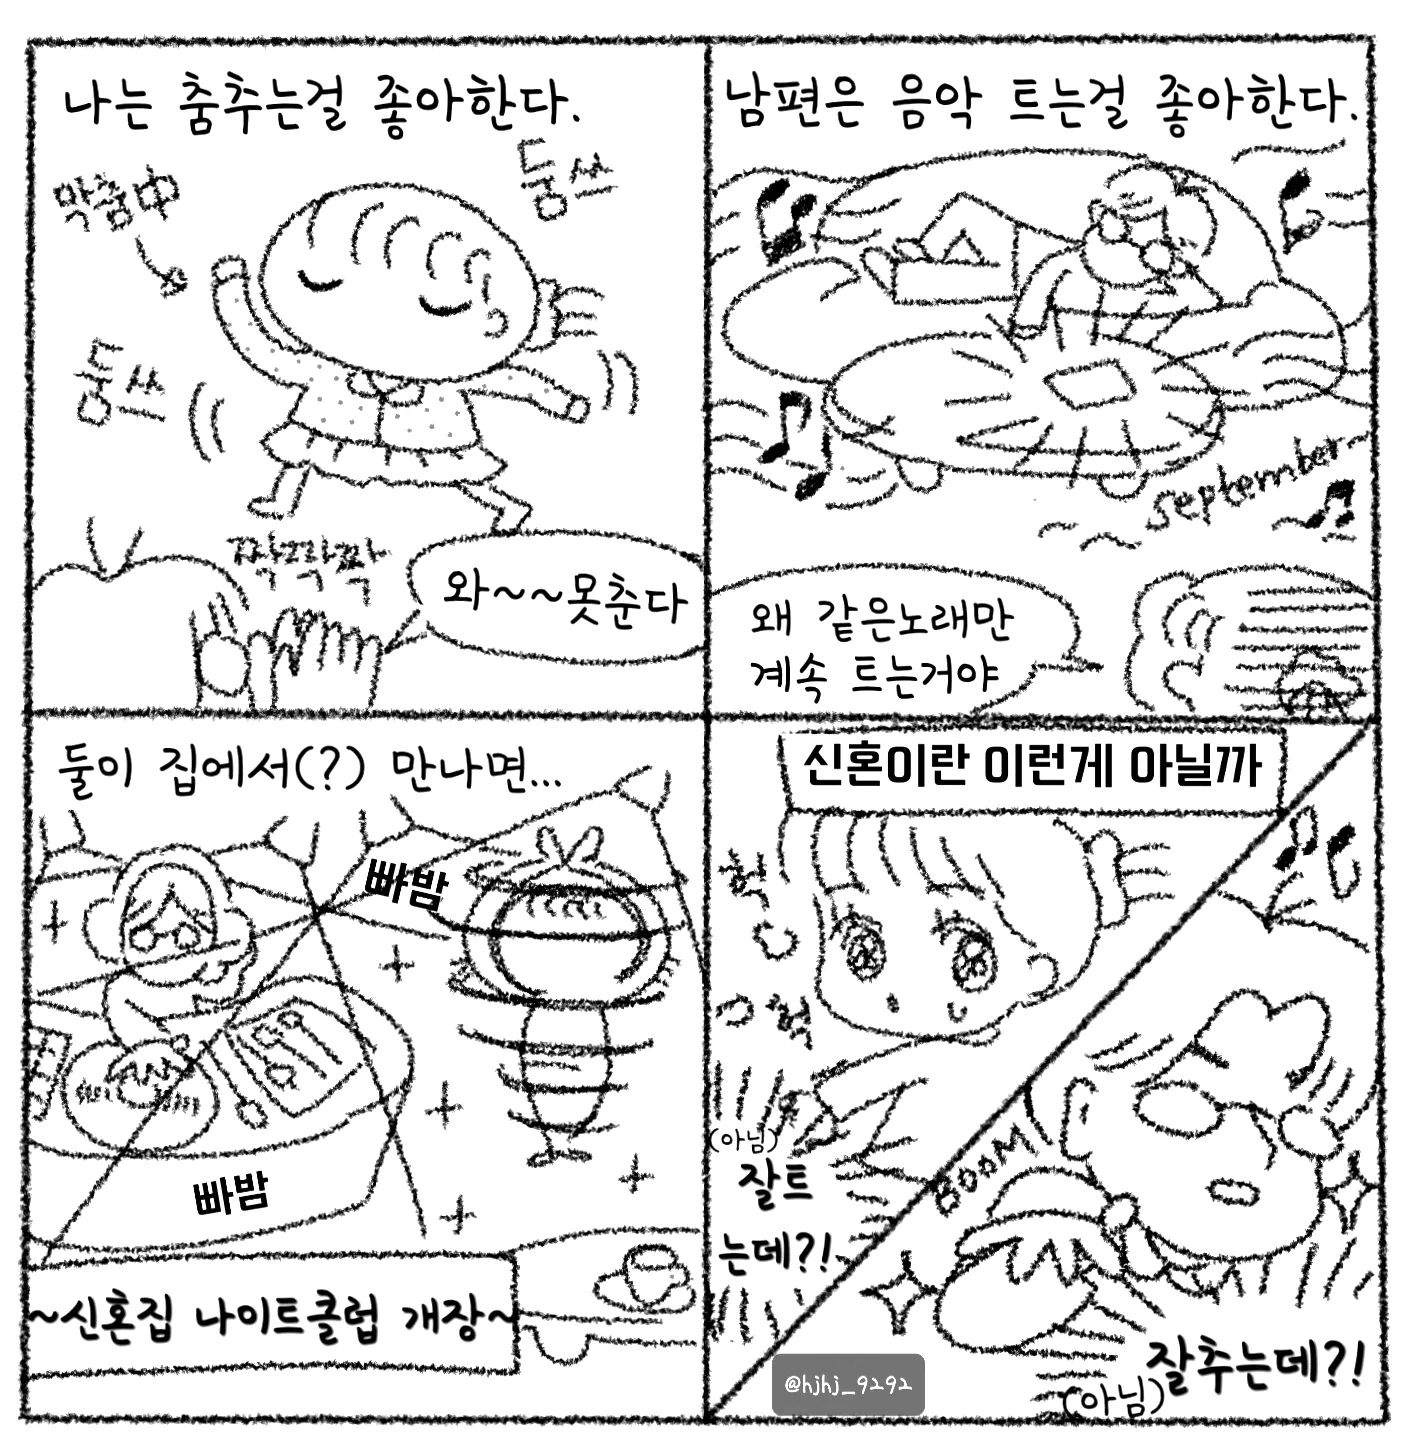 나는 춤추는걸 좋아한다.
막춤中
둠쓰
둠쓰
짝짝짝
와~~못춘다
남편은 음악 트는걸 좋아한다.
september
왜 같은노래만
계속 트는거야
둘이 집에서(?) 만나면...
빠밤
빠밤
~신혼집 나이트클럽 개장~
신혼이란 이런게 아닐까
헉
헉
(아님)
잘트
는데?!
BOOM
잘추는데?!
(아님)
@hjhj_9292